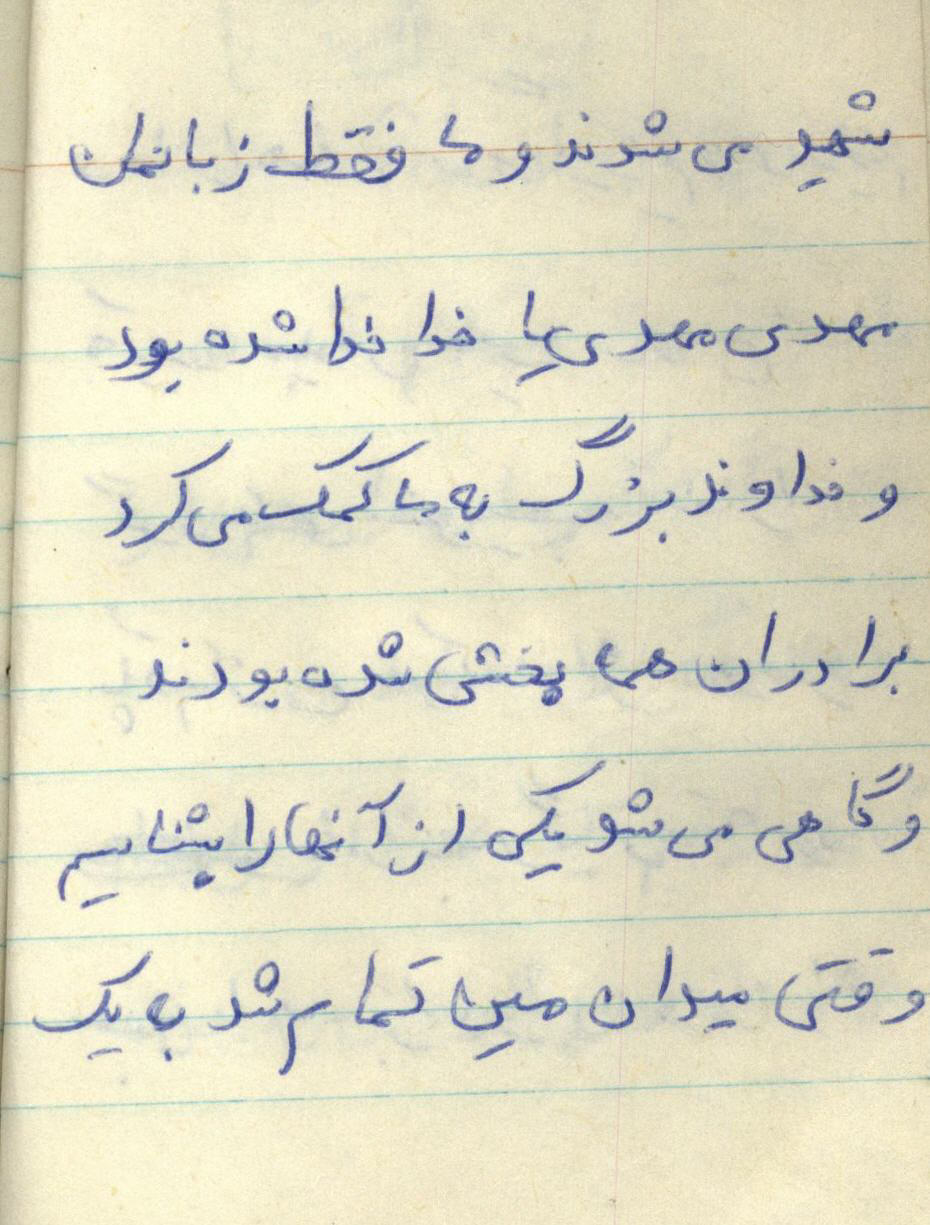 شهید می شدند و ما فقط زبانمان
مهدی مهدی یا خدا خدا شده بود
و خداوند بزرگ به ما کمک می کرد
برادران همه پخش شده بودند
و گاهی می شد یکی از آنها را بشناسیم
وقتی میدان مین تمام شد به یک